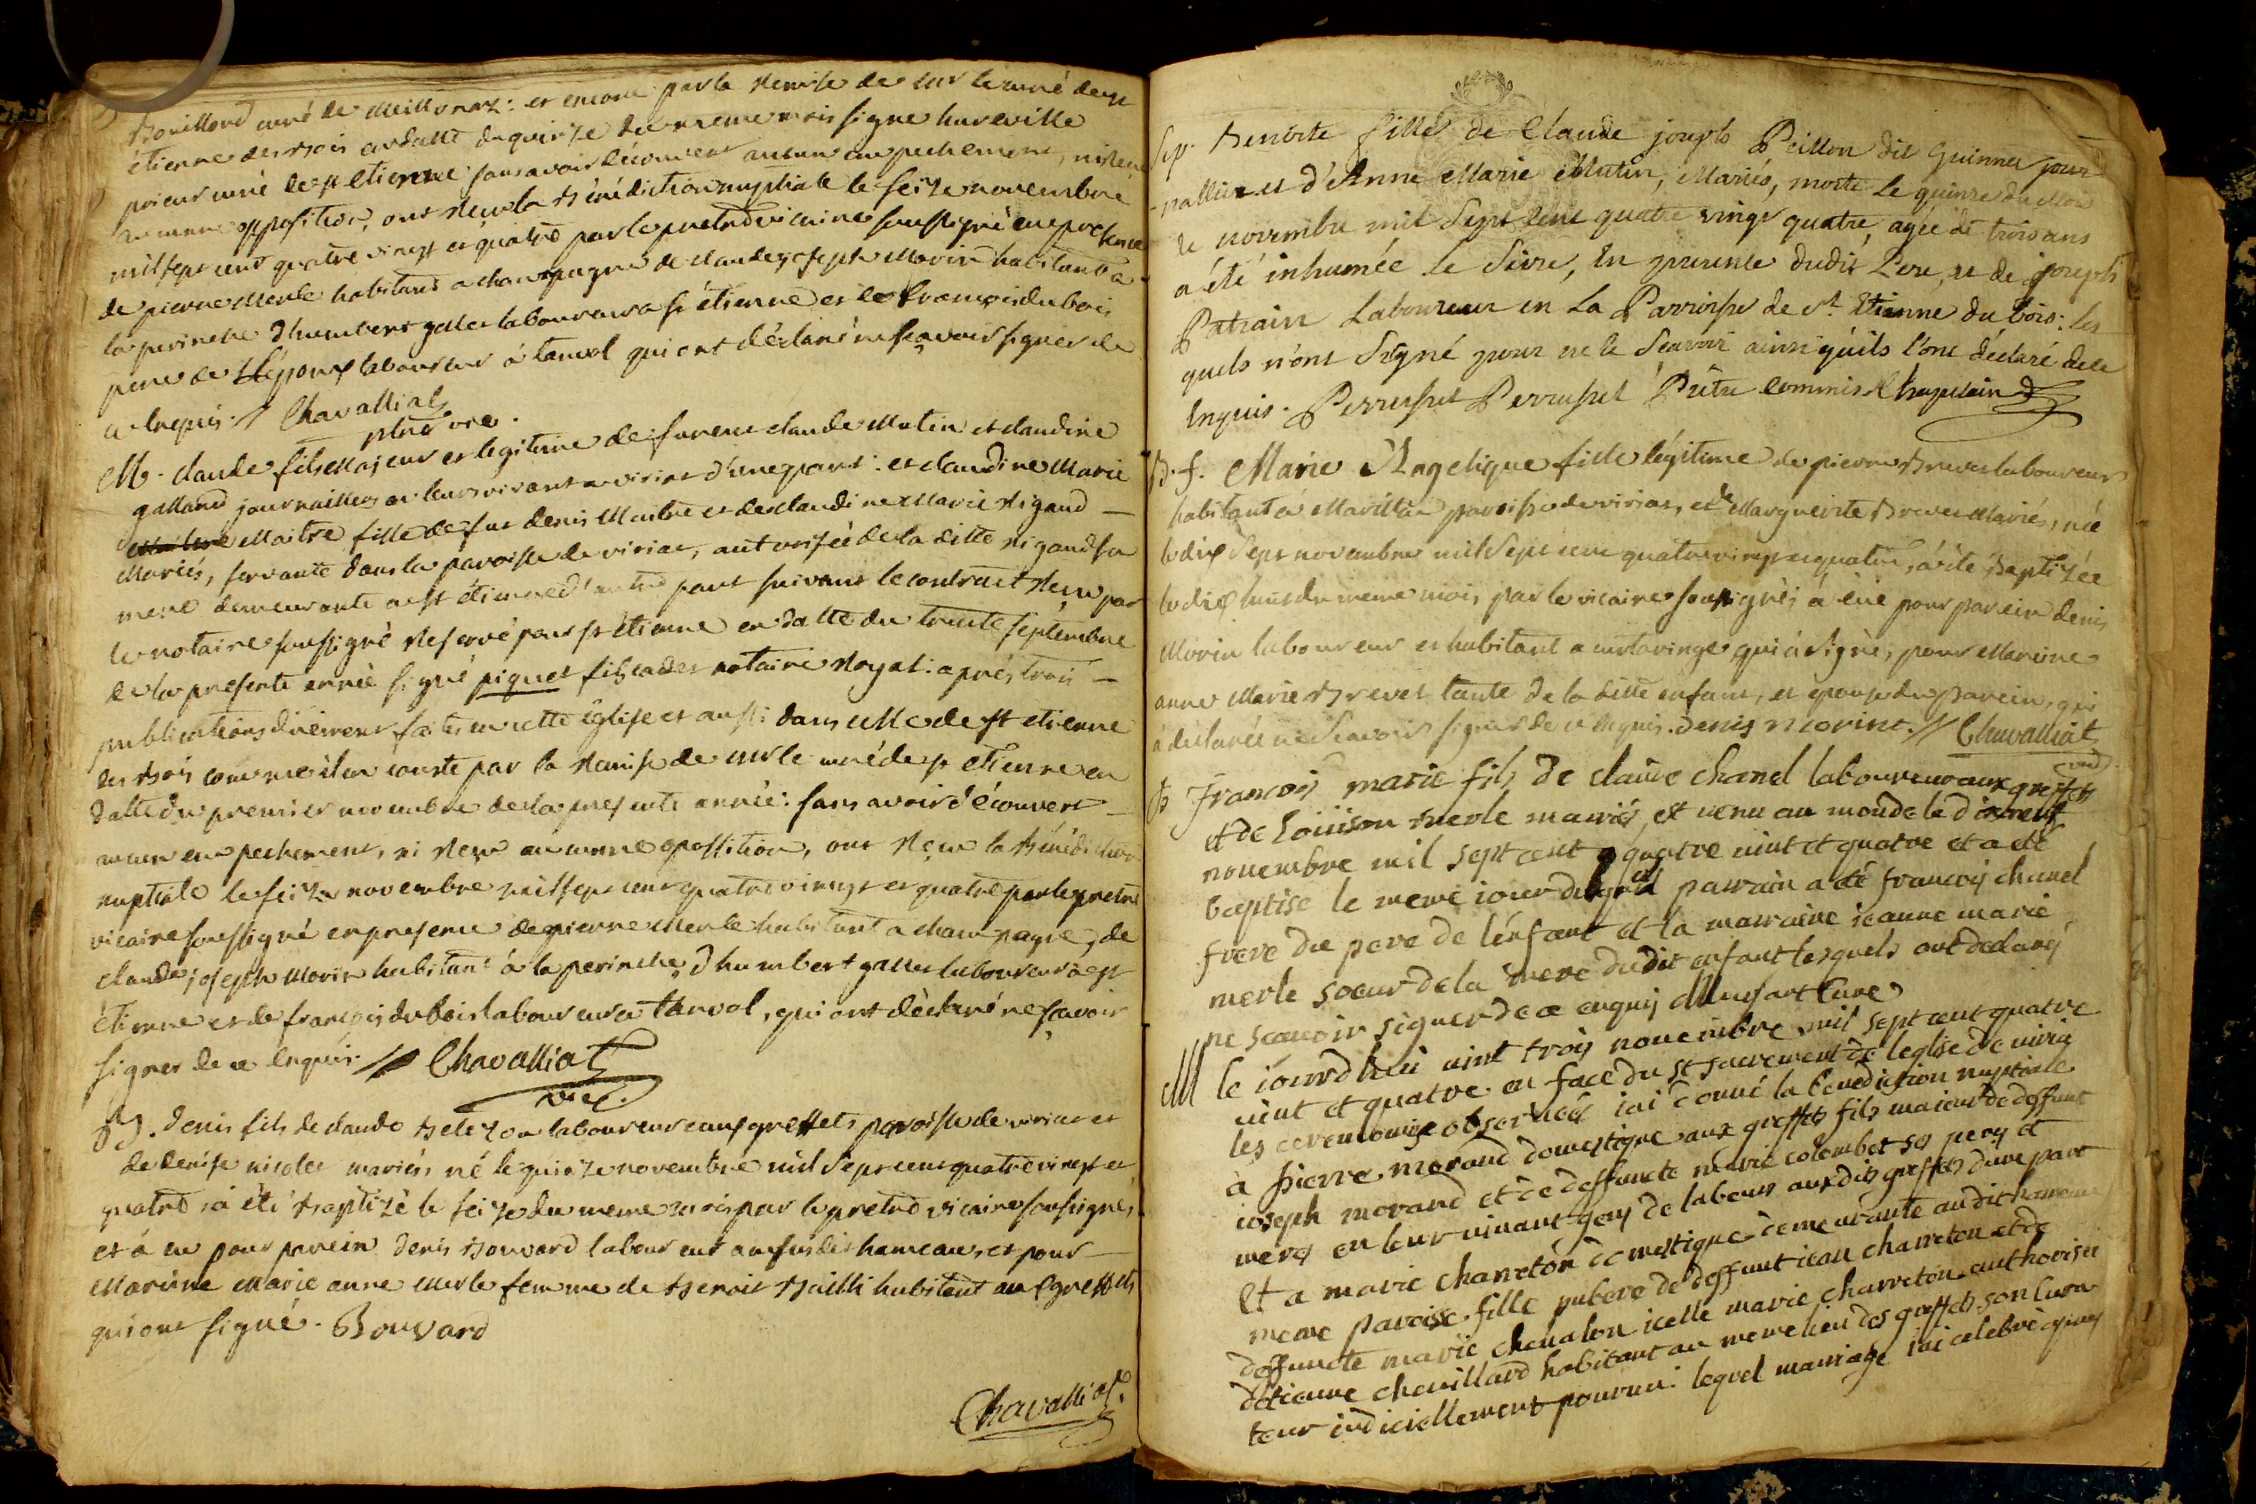 Bouillond curé de Meillonaz: et encore par la Remise de sur le curé de st
étienne des Bois en datte du quinze du meme mois signe hureville
prieur curé de st etienne: sans avoir découvert aucun empechement, ni
aucune opposition, ont Reçu la Bénédiction nuptiale le seize novembre
mil sept cent quatre vingt et quatre par le pretre vicaire soussigné en presence
de pierre Merle habitant a champagne de claude joseph Morin habitant à
la perinche d'humbert gallet laboureur a st étienne et de françois du bois
pere de l'Epoux laboureur à tanvol qui ont déclaré ne sçavoir signer de
ce Enquis. // Chavalliat
ptre vre.
M. claude fils Majeur et legitime de furent claude Mutin et claudine
galland journaillers en leurs vivant a viriat d'une part: et claudine Marie
Maitre fille de fut denis Maitre et de claudine Marie Rigaud
Mariés, servante dans la paroisse de viriat, authorisée de la ditte Rigaud sa
mere demeurante a st étienne d'autre part suivant le contract Reçu par
le notaire soussigné Reservé pour st étienne en datte du trente septembre
de la presente année signé piquet fils cadet notaire Royal: après trois
publications duement faites en cette église et aussi dans celle de st etienne
des Bois comme il en conste par la Remise de mr le curé de st etienne en
datte du premier novembre de la presente année: sans avoir découvert
aucun empechement, ni Reçu aucunne opossition, ont Reçu la Bénédiction
nuptiale le seize novembre mil sept cent quatre vingt et quatre par le pretre
vicaire soussigné en presence de pierre Merle habitant a champagne, de
claude joseph Morin habitant à la perinche, d'humbert gallet laboureur à st
étienne et de françois du bois laboureur a tanvol, qui ont déclaré ne sçavoir
signer de ce Enquis. // Chavalliat
vre.
B. Denis fils de claude Belezon laboureur aux greffets paroisse de viriat et
de denise nicolet mariés né le quinze novembre mil sept cent quatre vingt et
quatre, à été Baptizé le seize du meme mois par le pretre vicaire soussigné,
et à eu pour parein denis Bouvard laboureur au susdit hameau, et pour
Mareine Marie anne Merle femme de Benoit Bailli habitant au greffets
qui ont signé. Bouvard
Chavalliat
Sep. Benoite fille de Claude joseph Peillon dit Guinnet jour
-nallier et d'Anne Marie Mutin, Mariés, morte le quinze du Mois
de novembre mil Sept Cent quatre vingt quatre, agée de trois ans
a été inhumée le Seize, En presence dudit Pere, et de joseph
Putrain Laboureur en la Parroisse de st. Etienne du bois: les
quels n'ont Signé pour ne le Scavoir ainsi qu'ils l'ont déclaré de ce
Enquis. Perruset Perruset Prêtre Commis Chapelain
B. f. Marie Angelique fille légitime de pierre Brevet laboureur
habitant à Marillia paroisse de viriat, et de Marguerite Brevet Mariés, née
le dix Sept novembre mil Sept cent quatre vingt et quatre, à été Baptizée
le dix huit du meme mois, par le vicaire soussigné; à eüe pour parein denis
Morin laboureur et habitant a curtaringe, qui à signé, pour Mareine
anne Marie Brevet tante de la ditte enfant, et epouse du parein, qui
à declarée ne Scavoir signer de ce enquis. denis Morint. // Chavalliat
vre
B françois marie fils de claude chanel laboureur aux greffets
et de Loüison merle mariés, est venu au monde le dixneuf
novembre mil sept cent quatre vint et quatre et a eté
baptise le meme iour parrain a été francois chanel
frere du pere de l'enfant et la marraine ieanne marie
merle soeur de la mere du dit enfant lesquels ont declaré
ne scavoir signer de ce enquis curé
M le iourdhui vint trois novembre mil sept cent quatre
vint et quatre en face du st sacrement de leglise de viria
les ceremonies observées iai donné la benediction nuptiale
à pierre morand domestique aux greffets fils maieur de deffunt
ioseph morand et de deffuncte marie colombet ses pere et
mere en leur vivant gens de labeur auxdits greffets d'une part
Et a marie charreton domestique demeurante audit hameau
meme paroisse fille pubere de deffunt iean charreton et de
deffuncte marie chevalon icelle marie charreton authorisee
d'etienne chevillard habitant au meme lieu des greffets son cura
teur iudiciellement pourvu: lequel mariage iai celebré apres